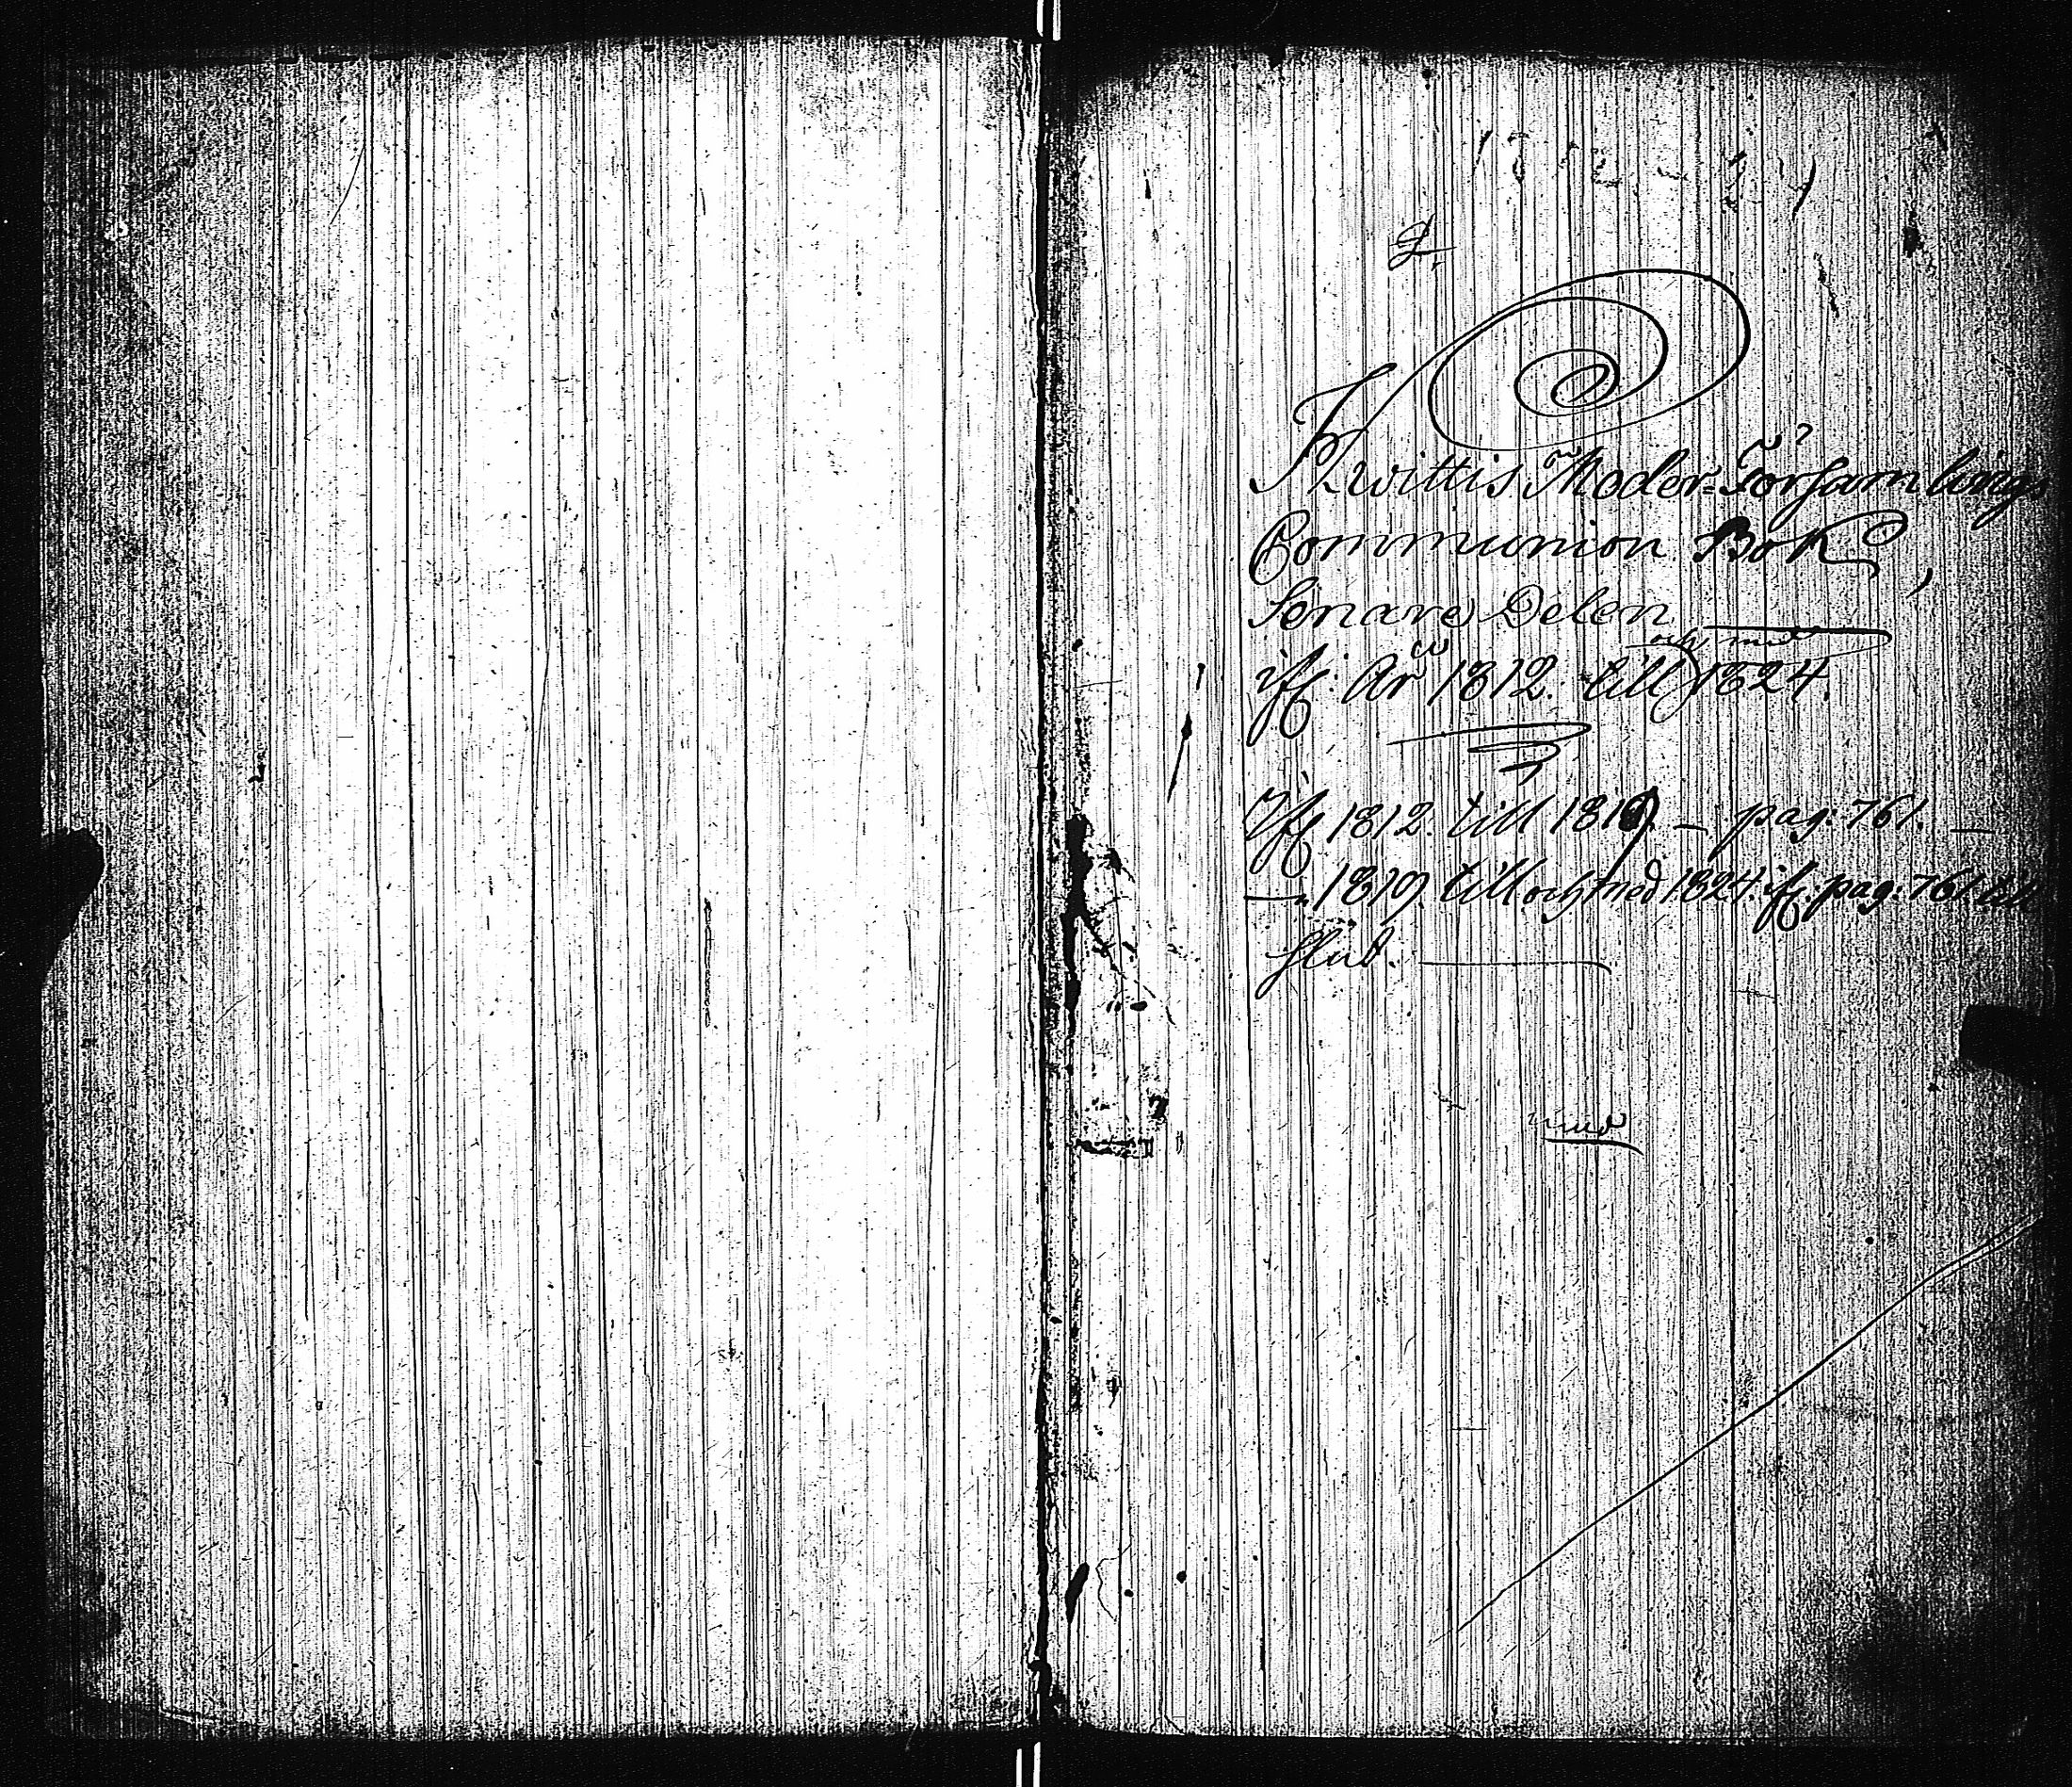 1812-24
2.
Kwittis Moder-Församlings
Communion Bok,
Senare Delen
och med
ifr: År 1812. till 1824.
Ifr 1812. till 1819. — pag: 761. —
—"— 1819. till och med 1824. ifr: pag: 761. till
slut.